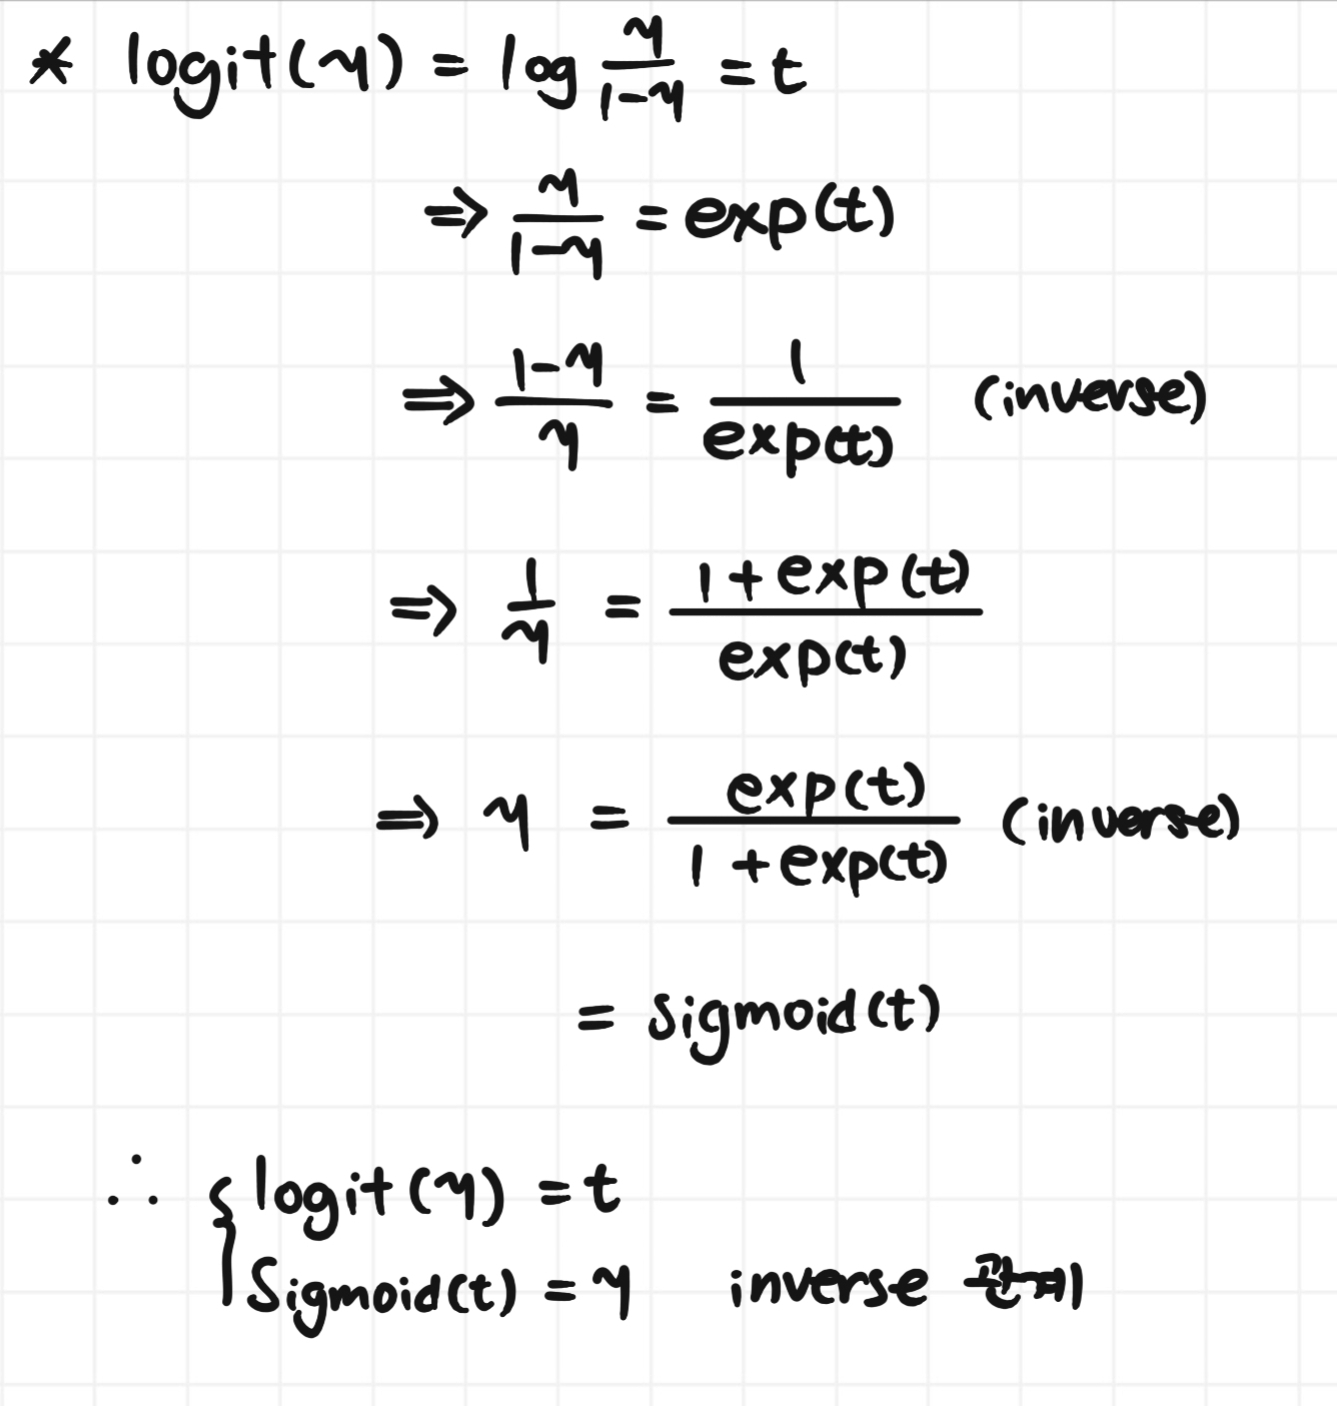 * logit(η) = log η/(1-η) = t
⇒ η/(1-η) = exp(t)
⇒ (1-η)/η = 1/exp(t) (inverse)
⇒ 1/η = (1 + exp(t))/exp(t)
⇒ η = exp(t)/(1 + exp(t)) (inverse)
= Sigmoid(t)
∴ { logit(η) = t
Sigmoid(t) = η inverse 관계